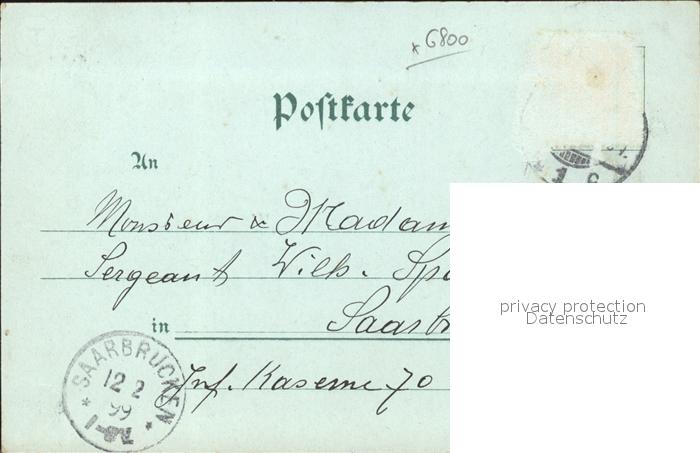 *6800
Postkarte
An
Monsieur & Madam
Sergeant Wilh. Spa
in Saarb
Inf. Kaserne 70
SAARBRÜCKEN
12 2
99
privacy protection
Datenschutz